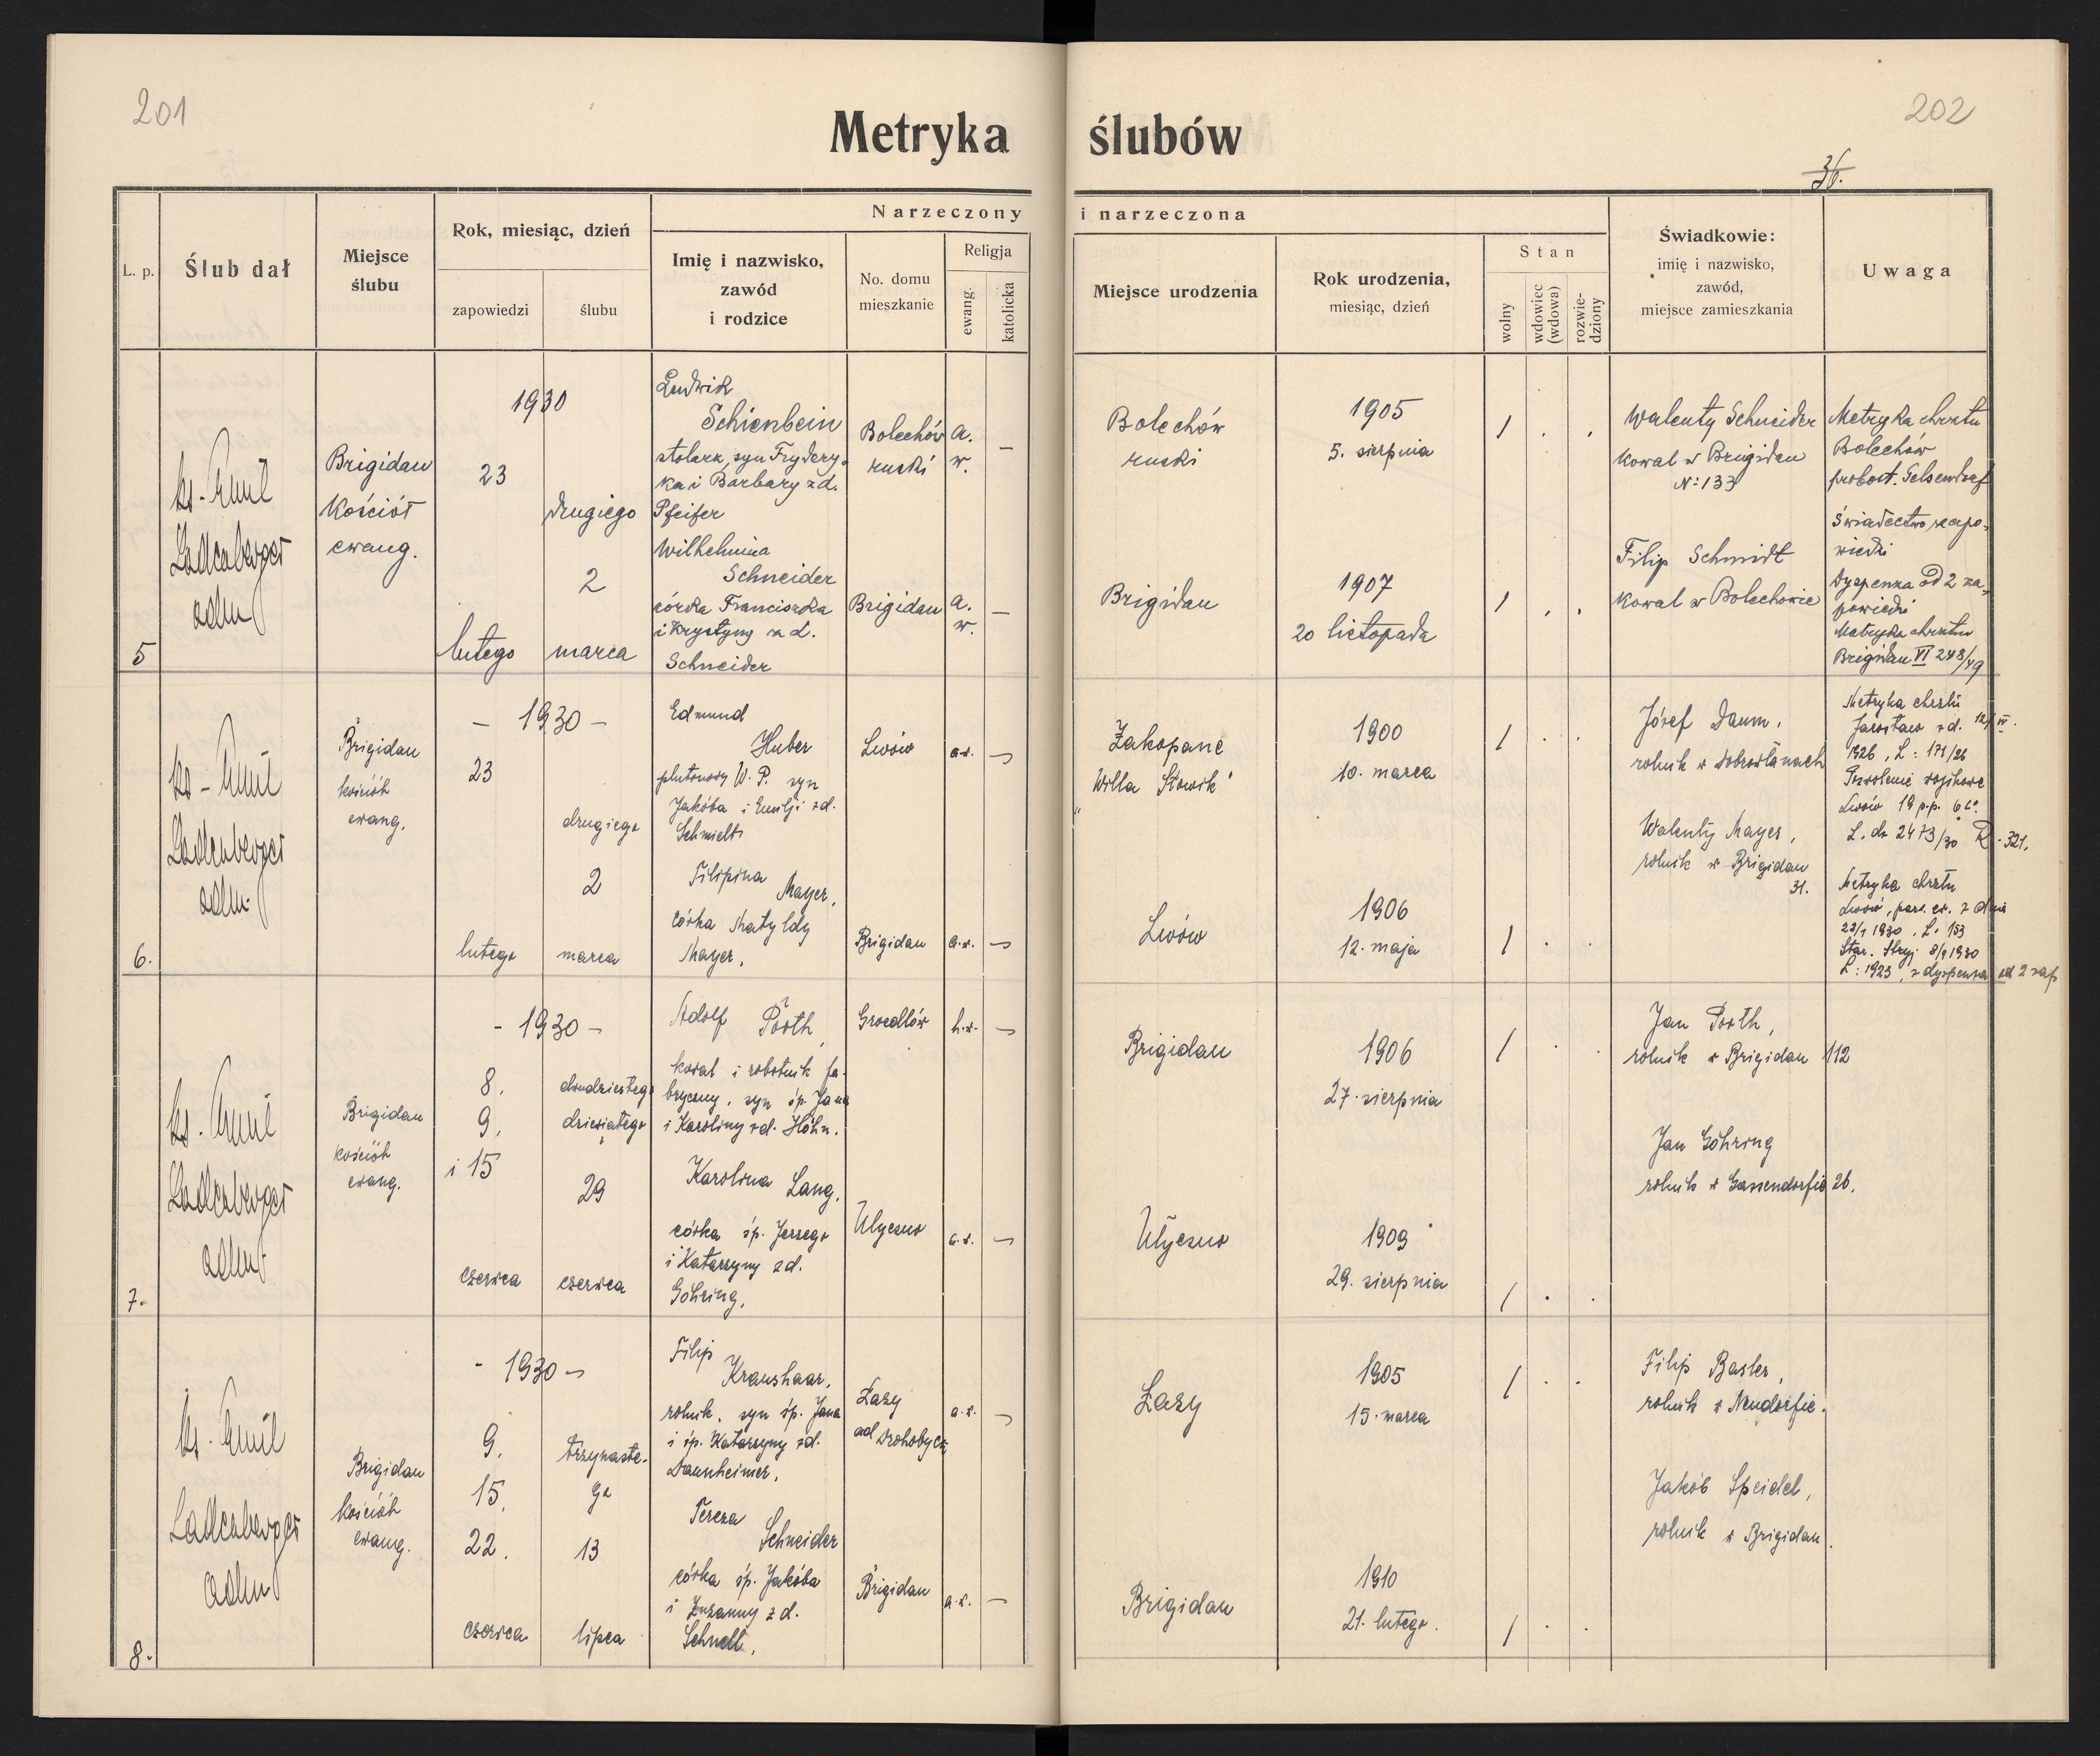 201
202
Metryka ślubów
36.
L. p.
Ślub dał
Miejsce
ślubu
Rok, miesiąc, dzień
zapowiedzi
ślubu
Narzeczony i narzeczona
Imię i nazwisko,
zawód
i rodzice
No. domu
mieszkanie
Religja
ewang.
katolicka
Miejsce urodzenia
Rok urodzenia,
miesiąc, dzień
Stan
wolny
wdowiec
(wdowa)
rozwie-
dziony
Świadkowie:
imię i nazwisko,
zawód,
miejsce zamieszkania
Uwaga
5
ks. Emil
Ladenberger
adm
Brigidau
Kościół
ewang.
1930
23
lutego
drugiego
2
marca
Ludwik
Schienbein
stolarz, syn Frydery-
ka i Barbary z d.
Pfeifer
Bolechów
ruski
a.
w.
—
Wilhelmina
Schneider
córka Franciszka
i Krystyny z d.
Schneider
Brigidau
a.
w.
—
Bolechów
ruski
1905
5. sierpnia
/ . .
Brigidau
1907
20 listopada
/ . .
Walenty Schneider
kowal w Brigidau
N: 133
Filip Schmidt
kowal w Bolechowie
Metryka chrztu
Bolechów
probost. Gelsendorf
Świadectwo zapo-
wiedzi
Dyspenza od 2 za-
powiedzi
Metryka chrztu
Brigidau VI 248/49
6.
ks - Emil
Ladenberger
adm.
Brigidau
kościół
ewang.
— 1930 —
23
lutego
drugiego
2
marca
Edmund
Huber
plutonowy W. P. syn
Jakóba i Emilji z d.
Schmidt
Lwów
a.w.
—
Filipina
Mayer,
córka Matyldy
Mayer.
Brigidau
a.w.
—
Zakopane
"Willa Słowik"
1900
10. marca
/ . .
Lwów
1906
12. maja
/ . .
Józef Daum,
rolnik w Dobrowlanach
Walenty Mayer,
rolnik w Brigidau
31.
Metryka chrztu
Jarosław z d. 12/IV.
1926, L: 171/26
Pozwolenie wojskowe
Lwów 19 p.p.
L. dz 2473/30 R-321.
Metryka chrztu
Lwów, par. ew. z dnia
1930, L. 153
Star. Stryj 1930
L: 1923, z dyspenzą od 2 zap
7.
ks. Emil
Ladenberger
adm
Brigidau
kościół
ewang.
- 1930 -
8.
9.
i 15
czerwca
dwudziestego
dziewiątego
29
czerwca
Adolf Porth,
kowal i robotnik fa-
bryczny, syn śp. Jana
i Karoliny z d. Höhn.
Groedlów
h.w.
—
Karolina Lang,
córka śp. Jerzego
i Katarzyny z d.
Göhring.
Ulyczno
a.w.
—
Brigidau
1906
27. sierpnia
/ . .
Ulyczno
1909
29. sierpnia
/ . .
Jan Porth,
rolnik w Brigidau 112
Jan Göhring
rolnik w Gassendorfie 26.
8.
ks. Emil
Ladenberger
adm
Brigidau
kościół
ewang.
- 1930 -
9.
15.
22.
czerwca
trzynaste-
go
13
lipca
Filip
Kraushaar,
rolnik, syn śp. Jana
i śp. Katarzyny z d.
Dannheimer.
Łazy
ad Drohobycz
a.w.
—
Tereza
Schneider
córka śp. Jakóba
i Zuzanny z d.
Schnell.
Brigidau
a.w.
—
Łazy
1905
15. marca
/ . .
Brigidau
1910
21. lutego.
/ . .
Filip Basler,
rolnik w Neudorfie.
Jakób Speidel,
rolnik w Brigidau.